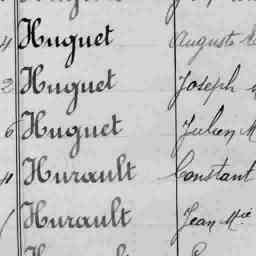 4 Huguet Auguste
2 Huguet Joseph
6 Huguet Julien M
Hurault Constant
Hurault Jean Mie